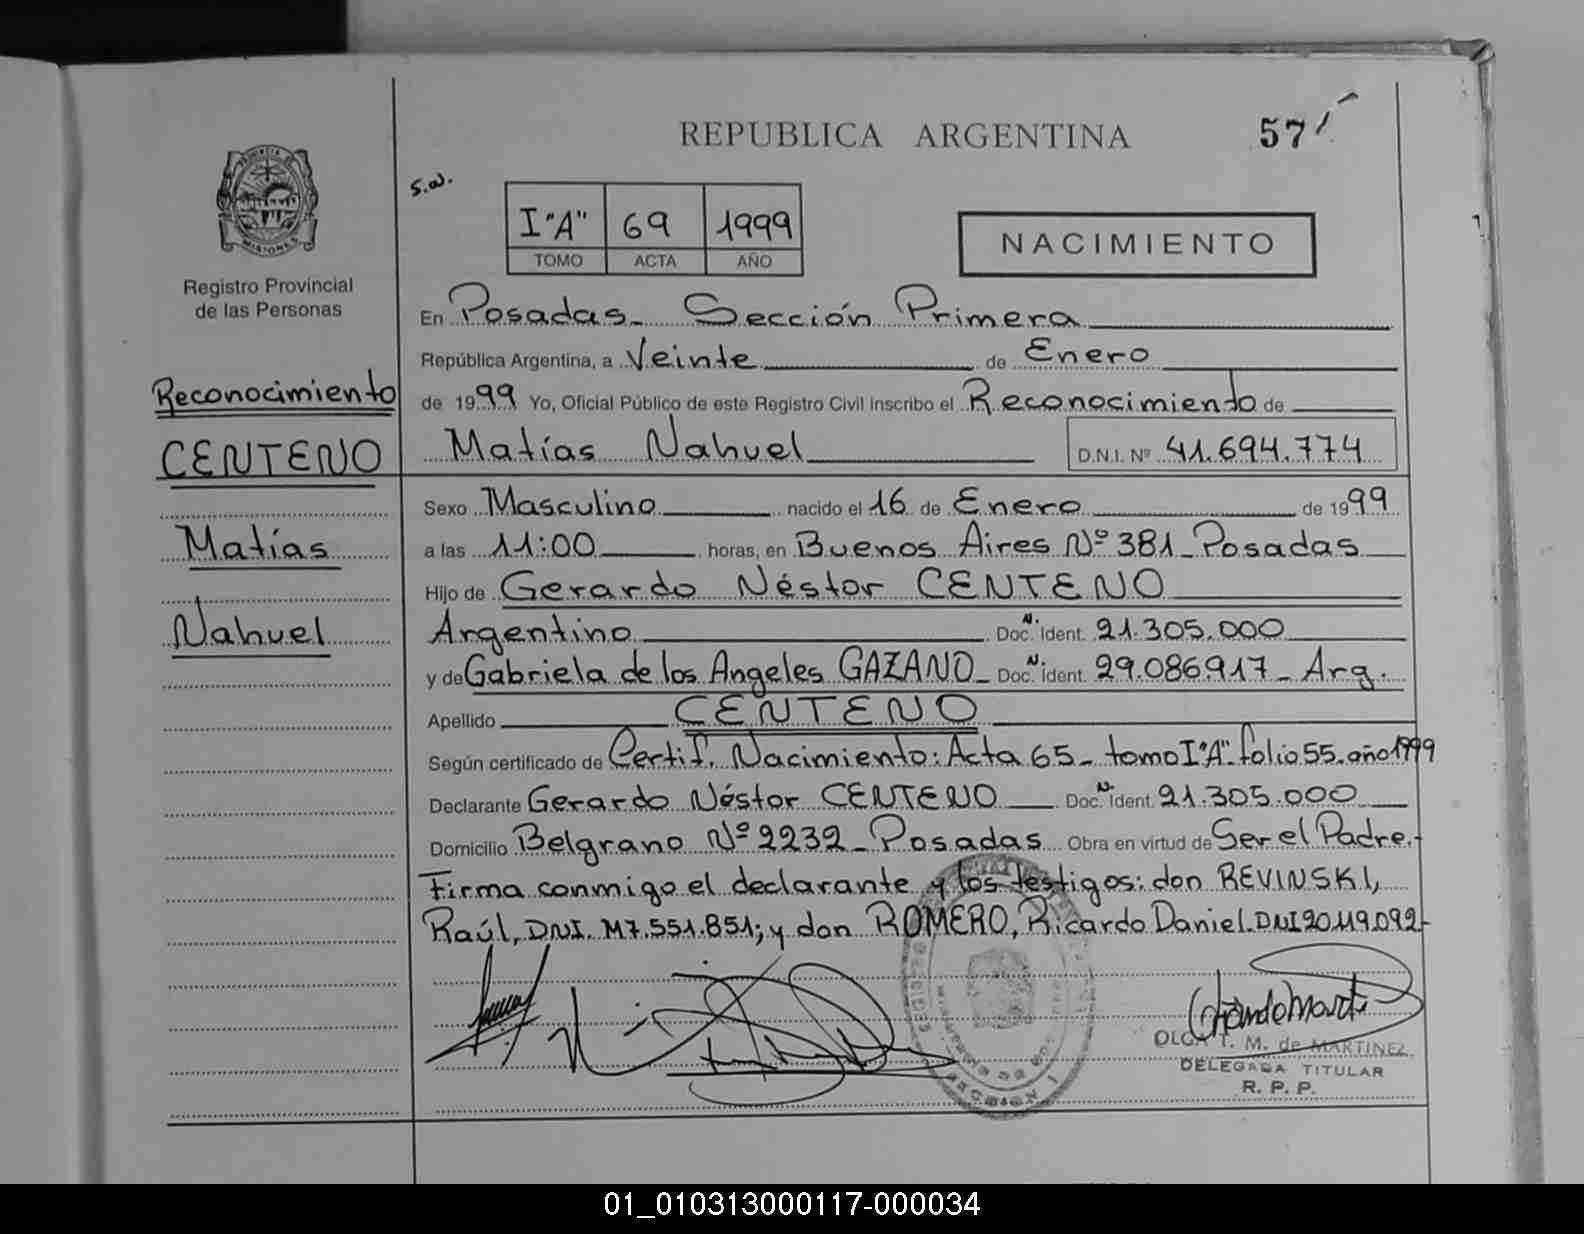 REPUBLICA ARGENTINA
57
s.w.
I "A" 69 1999
TOMO ACTA AÑO
NACIMIENTO
PROVINCIA DE
MISIONES
Registro Provincial
de las Personas
Reconocimiento
CENTENO
Matías
Nahuel
En Posadas_ Sección Primera
República Argentina, a Veinte de Enero
de 1999 Yo, Oficial Público de este Registro Civil inscribo el Reconocimiento de
Matías Nahuel D.N.I. Nº 41.694.774
Sexo Masculino nacido el 16 de Enero de 1999
a las 11:00 horas, en Buenos Aires Nº 381_Posadas
Hijo de Gerardo Néstor CENTENO
Argentino Doc. N. Ident. 21.305.000
y de Gabriela de los Angeles GAZANO_ Doc. N. Ident. 29.086.917_ Arg.
Apellido CENTENO
Según certificado de Certif. Nacimiento: Acta 65_ tomo I"A"_folio 55_año 1999
Declarante Gerardo Néstor CENTENO Doc. N. Ident. 21.305.000
Domicilio Belgrano Nº 2232_Posadas Obra en virtud de Ser el Padre.-
Firma conmigo el declarante y los testigos: don REVINSKI,
Raúl, DNI. M7.551.851; y don ROMERO, Ricardo Daniel_DNI 20119.092-
OLGA T. M. de MARTINEZ
DELEGADA TITULAR
R. P. P.
01_010313000117-000034